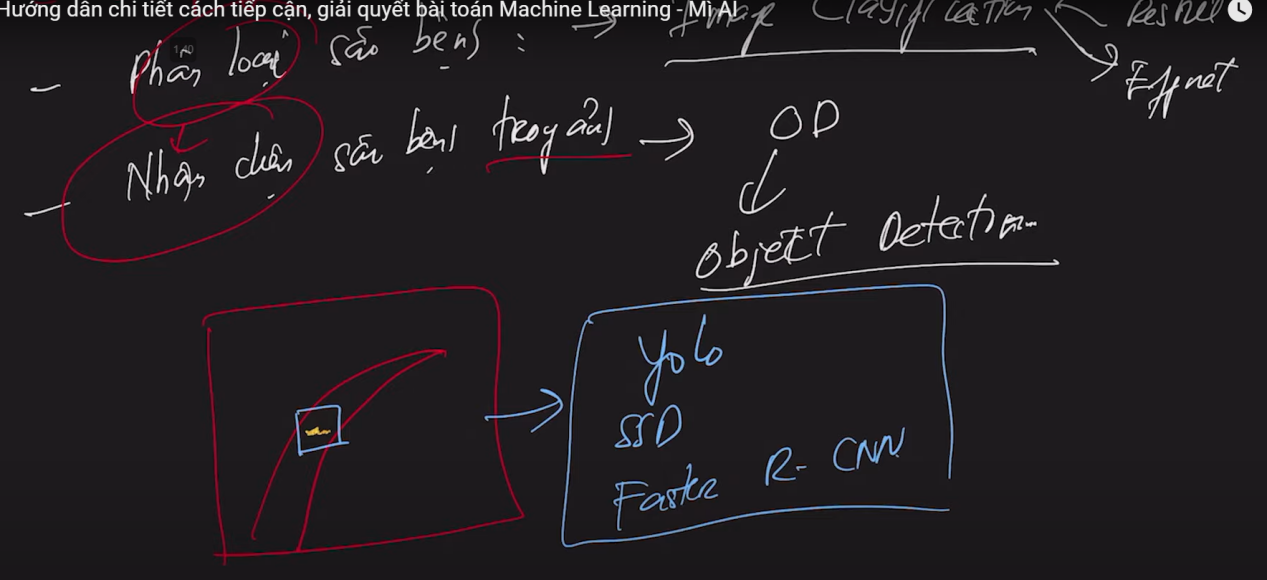 Hướng dẫn chi tiết cách tiếp cận, giải quyết bài toán Machine Learning - Mì AI
- Phân loại sâu bệnh : → Image Classification
Resnet
Effnet
- Nhận diện sâu bệnh trong ảnh → OD
Object Detection
Yolo
SSD
Faster R-CNN